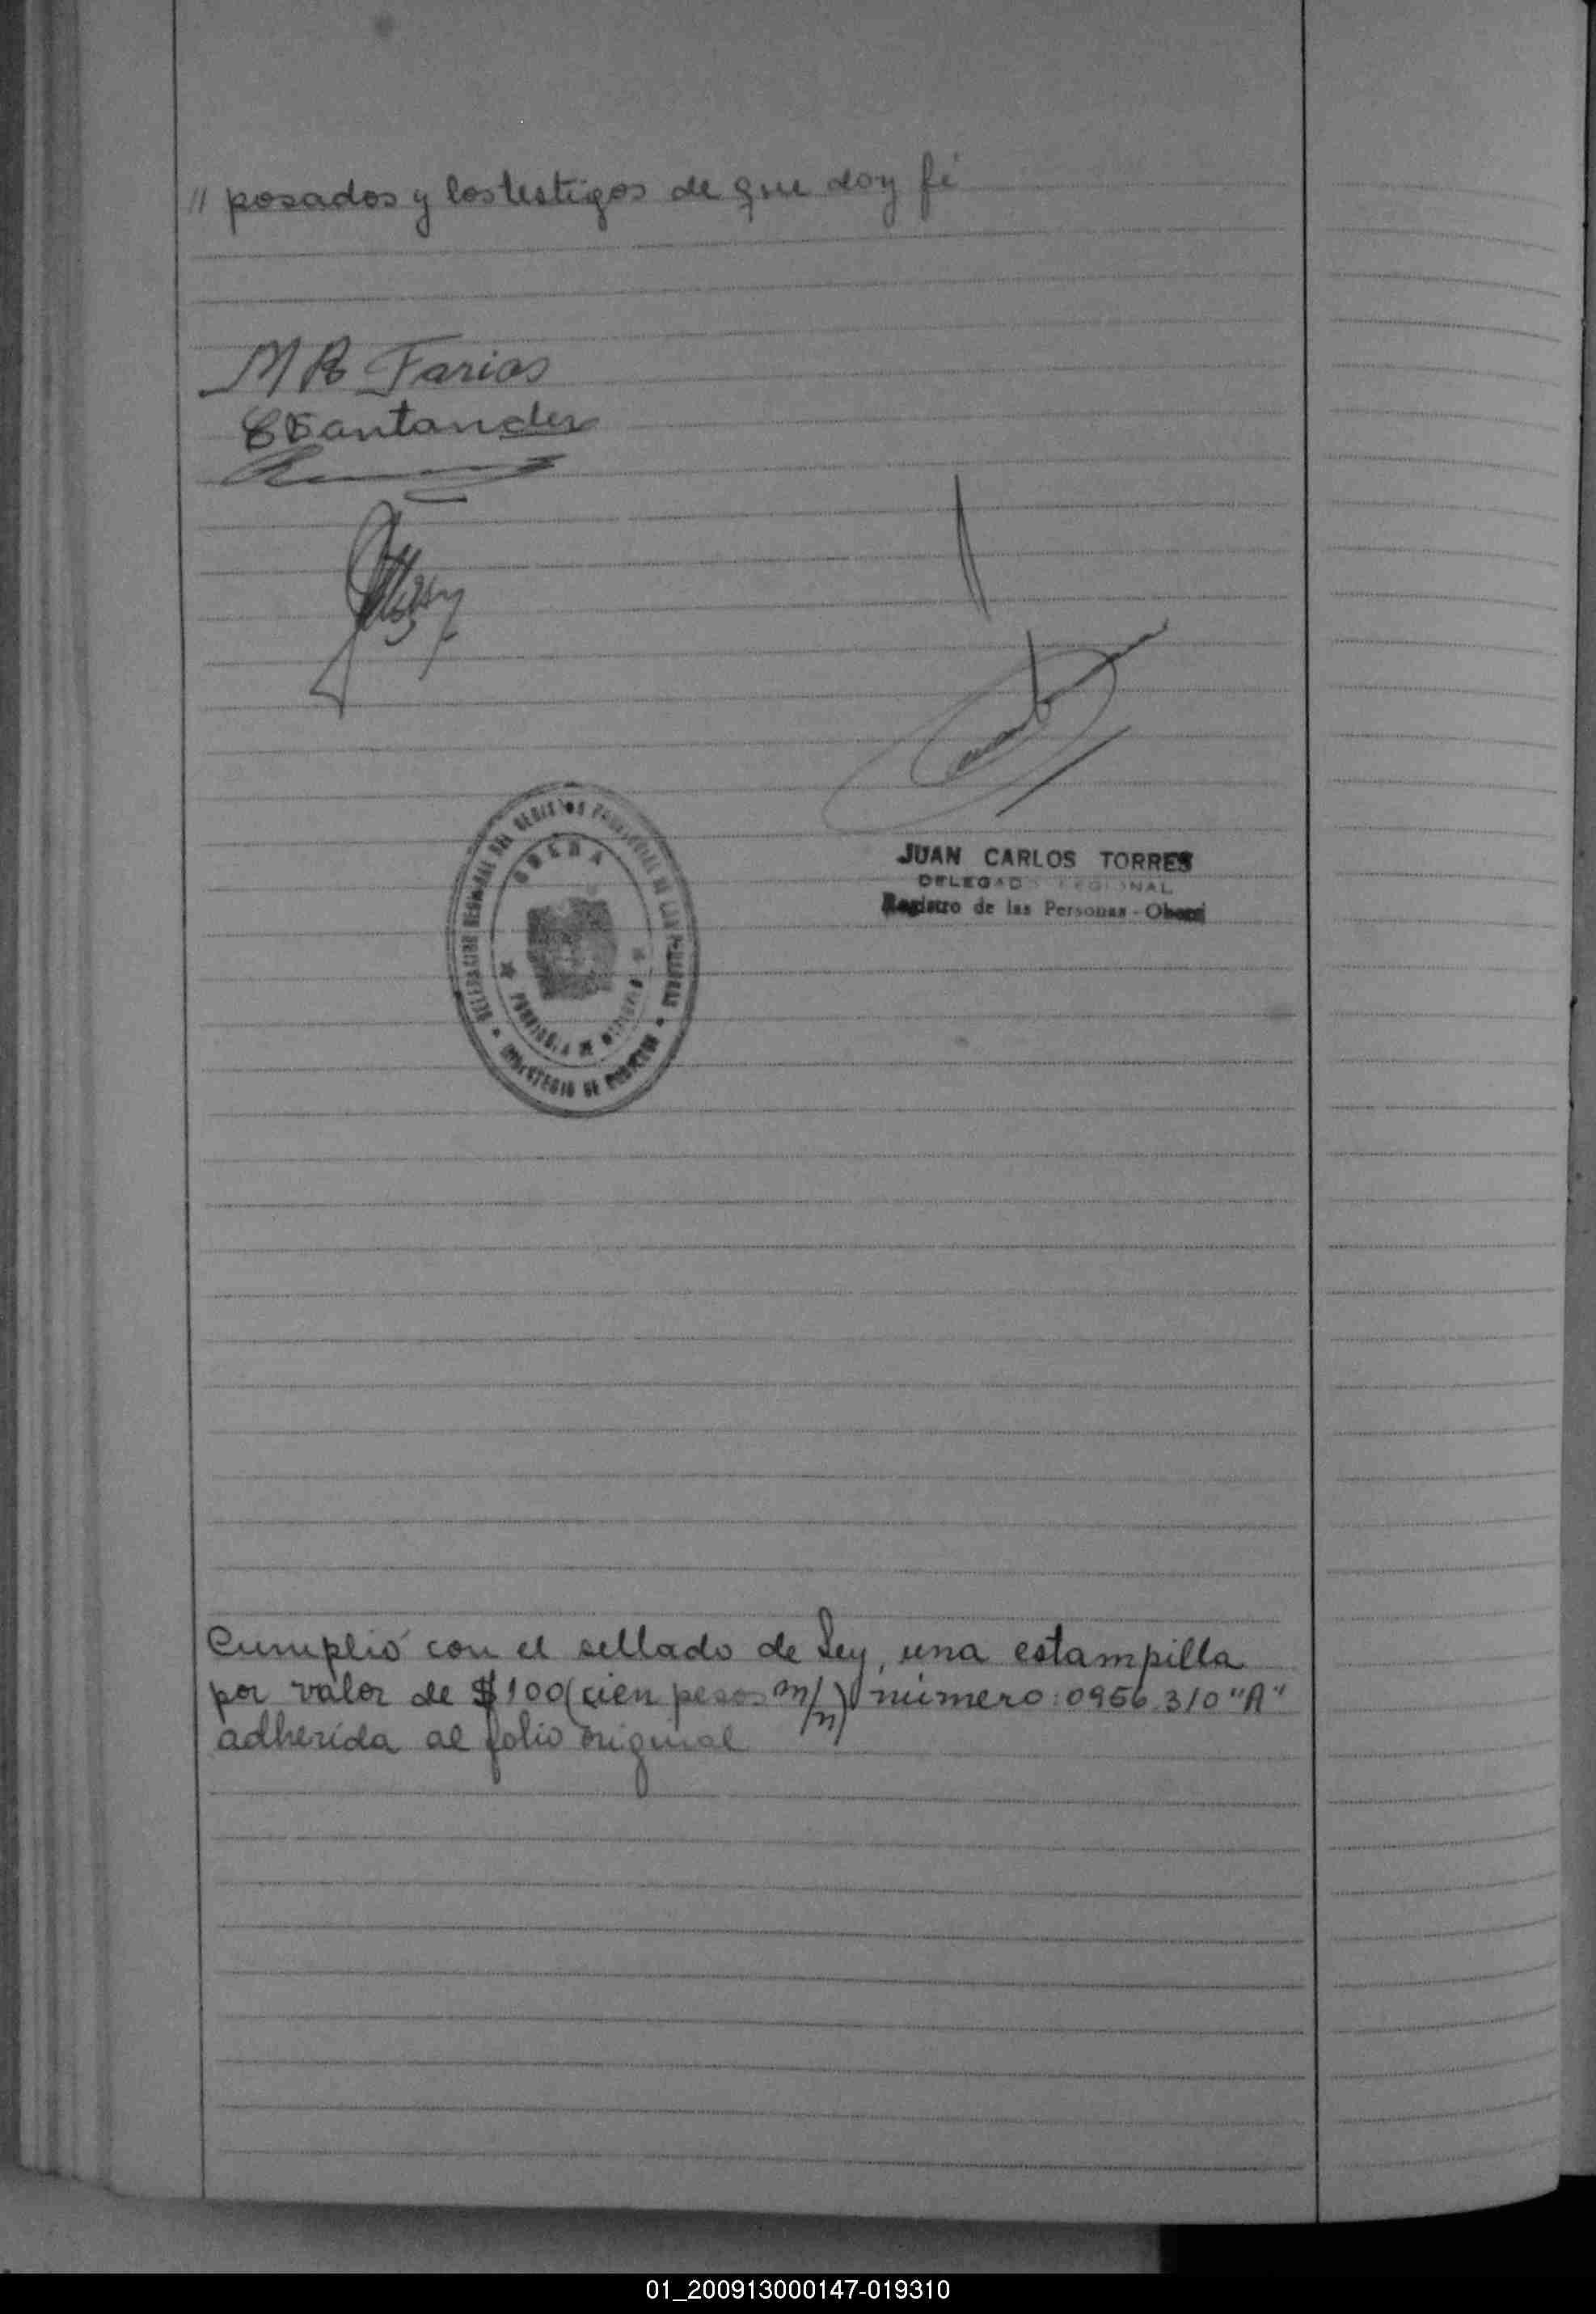 // posados y los testigos de que doy fé
M R Farias
C Santander
JUAN CARLOS TORRES
DELEGADO REGIONAL
Registro de las Personas - Oberá
DELEGACION REGIONAL DEL REGISTRO PROVINCIAL DE LAS PERSONAS
OBERA
PROVINCIA DE MISIONES
MINISTERIO DE GOBIERNO
Cumplió con el sellado de Ley, una estampilla
por valor de $100 (cien pesos m/n) número: 0956.310 "A"
adherida al folio original
01_200913000147-019310